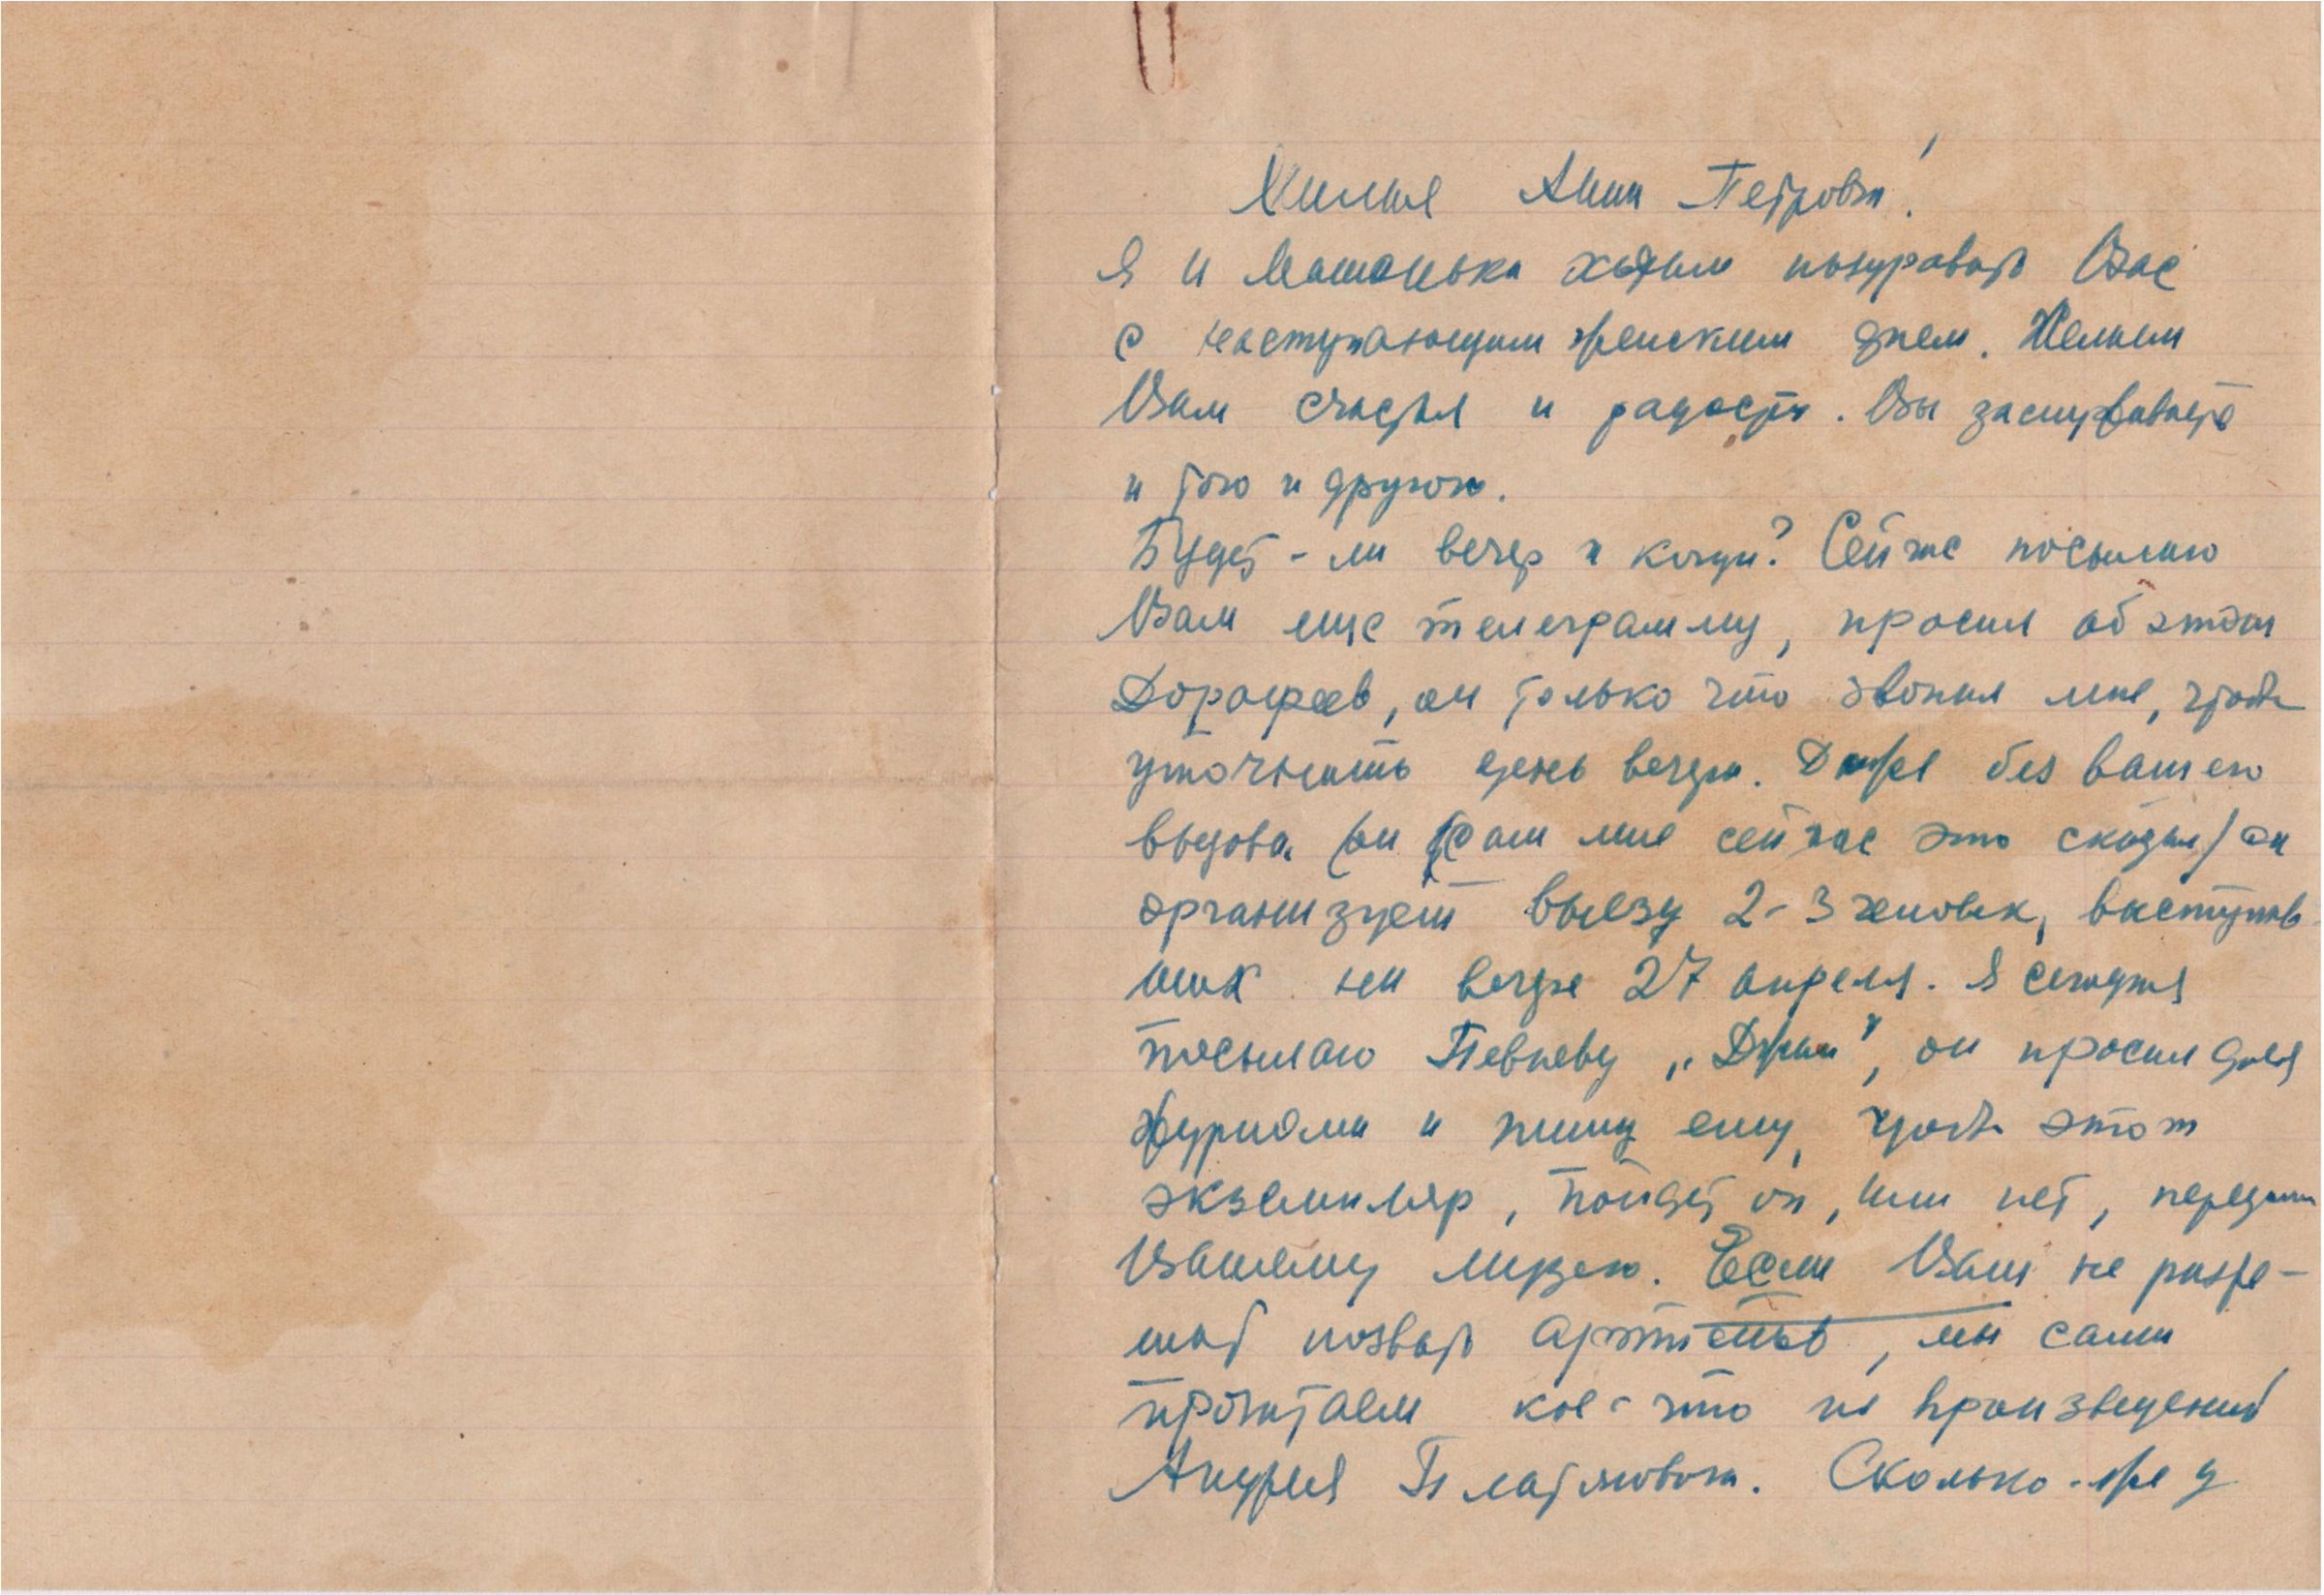 Милая Анна Петровна!
Я и Машенька хотим поздравить Вас
с наступающим женским днем. Желаем
Вам счастья и радости. Вы заслуживаете
и того и другого.
Будет-ли вечер и когда? Сейчас посылаю
Вам еще телеграмму, просил об этом
Дорофеев, он только что звонил мне, чтобы
уточнить день вечера. Даже без вашего
вызова (он сам мне сейчас это сказал) он
организует выезд 2-3 человек,
на вечере 27 апреля. Я сегодня
посылаю Певневу „Джан", он просил для
журнала и пишу ему, чтобы этот
экземпляр, пойдет он, или нет, передали
Вашему музею. Если Вам не разре-
шат позвать артистов, мы сами
прочитаем кое-что из произведений
Андрея Платонова. Сколько-же у